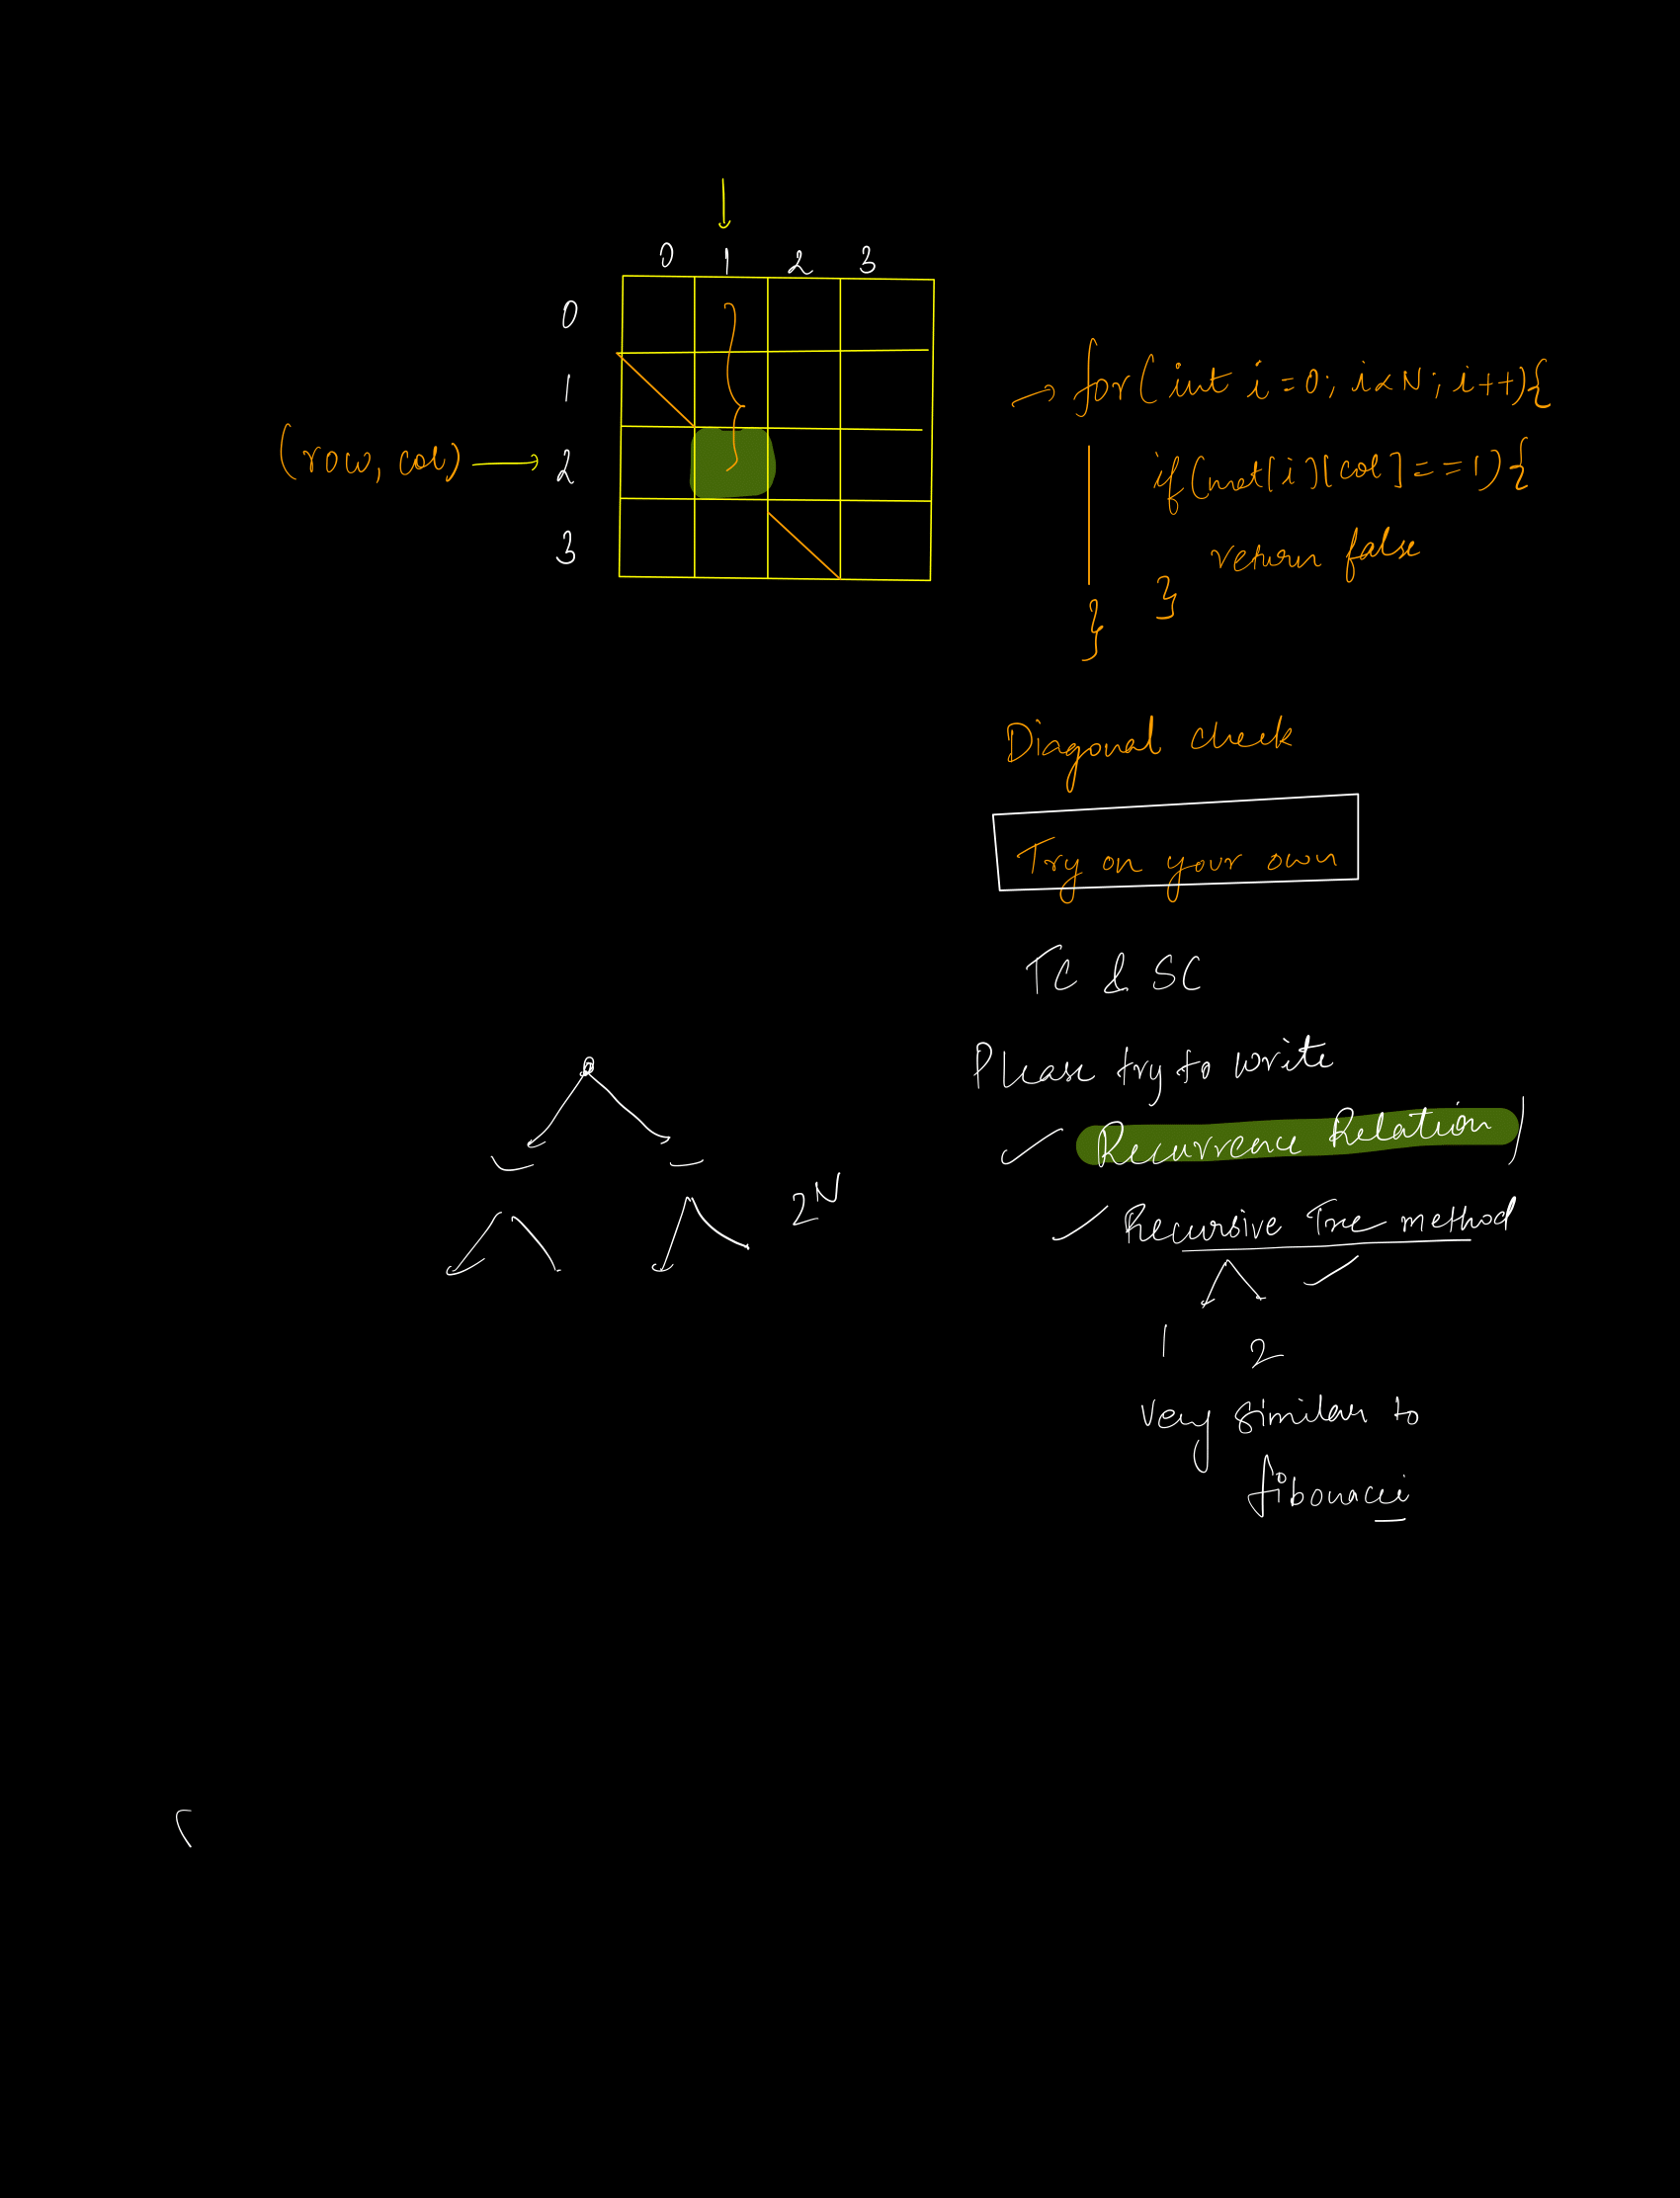 0 1 2 3
0
1
(row, col) → 2
3
→ for(int i=0; i<N; i++){
if(mat[i][col]==1){
return false
}
}
Diagonal check
Try on your own
TC & SC
Please try to write
✓ Recurrence Relation
✓ Recursive Tree method
1 2
very similar to
fibonacci
2^N